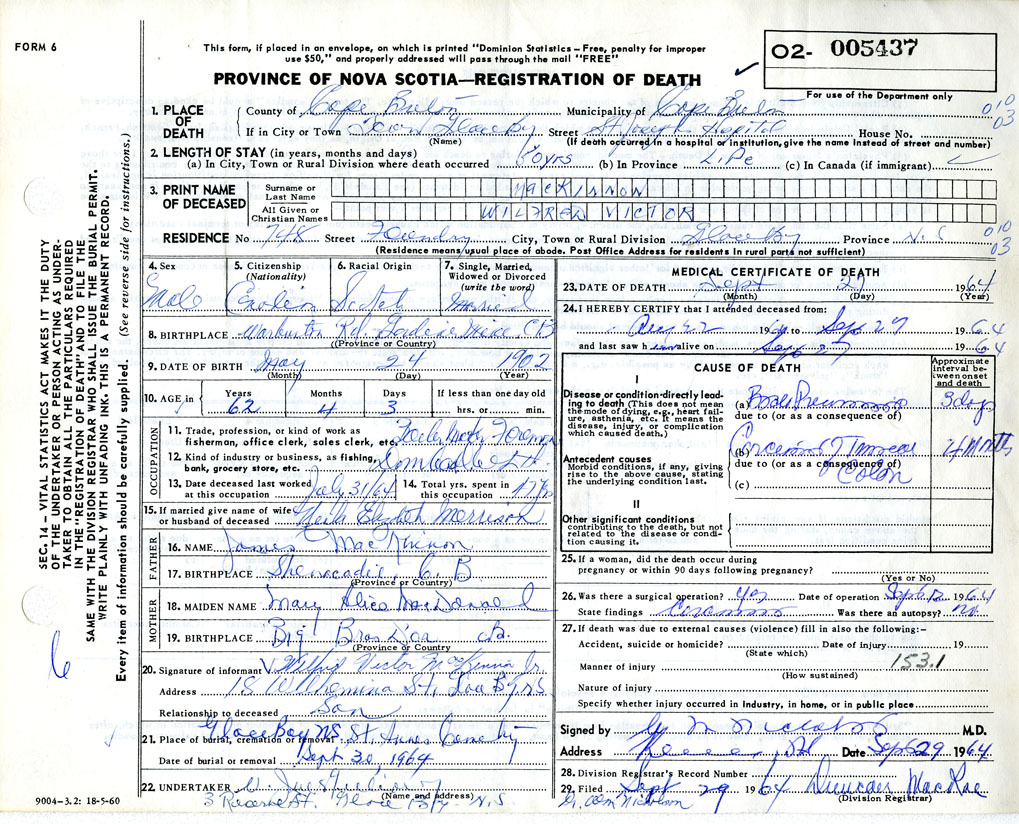 FORM 6
This form, if placed in an envelope, on which is printed "Dominion Statistics – Free, penalty for improper
use $50," and properly addressed will pass through the mail "FREE"
O2- 005437
PROVINCE OF NOVA SCOTIA—REGISTRATION OF DEATH
For use of the Department only
1. PLACE OF DEATH
County of Cape Breton Municipality of Cape Breton
010
03
If in City or Town Town Glace Bay Street St Joseph Hospital House No.
(Name) (If death occurred in a hospital or institution, give the name instead of street and number)
2. LENGTH OF STAY (in years, months and days)
(a) In City, Town or Rural Division where death occurred 60 yrs (b) In Province Life (c) In Canada (if immigrant)
3. PRINT NAME OF DECEASED
Surname or Last Name MacKINNON
All Given or Christian Names WILFRED VICTOR
RESIDENCE No 748 Street Foundry City, Town or Rural Division Glace Bay Province N.S
010
03
(Residence means usual place of abode. Post Office Address for residents in rural parts not sufficient)
4. Sex Male
5. Citizenship (Nationality)
6. Racial Origin Scotch
7. Single, Married, Widowed or Divorced (write the word) Married
8. BIRTHPLACE Rd. CB
(Province or Country)
9. DATE OF BIRTH May 24 1902
(Month) (Day) (Year)
10. AGE in Years 62 Months 4 Days 3 If less than one day old
hrs. or min.
OCCUPATION
11. Trade, profession, or kind of work as
fisherman, office clerk, sales clerk, etc.
12. Kind of industry or business, as fishing,
bank, grocery store, etc.
13. Date deceased last worked
at this occupation July 31/64
14. Total yrs. spent in
this occupation 47 yrs
15. If married give name of wife
or husband of deceased Elizabeth Morrison
FATHER
16. NAME James MacKinnon
17. BIRTHPLACE Shenacadie, C. B
(Province or Country)
MOTHER
18. MAIDEN NAME Mary Alice MacDonald
19. BIRTHPLACE Big Bras D'or CB.
(Province or Country)
20. Signature of informant Victor McKinnon Jr.
Address 18 Wilhemina St, Glace Bay NS
Relationship to deceased Son
21. Place of burial, cremation or removal Glace Bay NS, St. Annes Cemetry
Date of burial or removal Sept 30, 1964
22. UNDERTAKER
(Name and address)
3 Reserve St. Glace Bay N.S
MEDICAL CERTIFICATE OF DEATH
23. DATE OF DEATH Sept 27 1964
(Month) (Day) (Year)
24. I HEREBY CERTIFY that I attended deceased from:
Aug 22 1964 to Sept 27 1964
and last saw him alive on Sept 27 1964
CAUSE OF DEATH
Approximate interval between onset and death
I
Disease or condition directly leading to death (This does not mean the mode of dying, e.g., heart failure, asthenia, etc. It means the disease, injury, or complication which caused death.)
(a) Pneumonia 3 day
due to (or as a consequence of)
Antecedent causes
Morbid conditions, if any, giving rise to the above cause, stating the underlying condition last.
(b) Colon 4 Months
due to (or as a consequence of)
(c)
II
Other significant conditions
contributing to the death, but not related to the disease or condition causing it.
25. If a woman, did the death occur during
pregnancy or within 90 days following pregnancy?
(Yes or No)
26. Was there a surgical operation? Yes Date of operation Sept 1964
State findings Was there an autopsy? no
27. If death was due to external causes (violence) fill in also the following:–
Accident, suicide or homicide? Date of injury 19
(State which)
153.1
Manner of injury
(How sustained)
Nature of injury
Specify whether injury occurred in Industry, in home, or in public place
Signed by M.D.
Address Date Sept 29 1964
28. Division Registrar's Record Number
29. Filed Sept 29 1964 Duncan MacRae
(Division Registrar)
Dr. Wm Nicholson
SEC. 14 – VITAL STATISTICS ACT MAKES IT THE DUTY
OF THE UNDERTAKER OR PERSON ACTING AS UNDER-
TAKER TO OBTAIN ALL THE PARTICULARS REQUIRED
IN THE "REGISTRATION OF DEATH" AND TO FILE THE
SAME WITH THE DIVISION REGISTRAR WHO SHALL ISSUE THE BURIAL PERMIT.
WRITE PLAINLY WITH UNFADING INK. THIS IS A PERMANENT RECORD.
Every item of information should be carefully supplied. (See reverse side for instructions.)
6
9004–3.2: 18-5-60